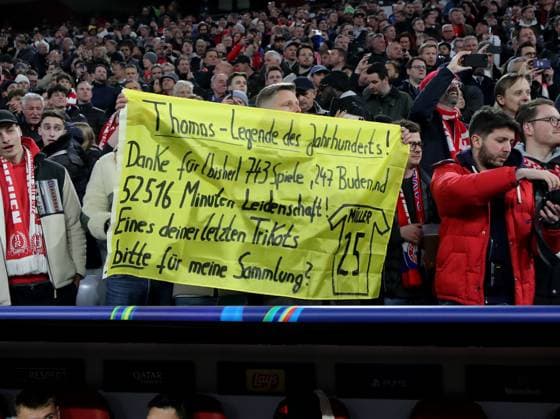 Thomas - Legende des Jahrhunderts!
Danke für (bisher) 743 Spiele, 247 Buden und
52516 Minuten Leidenschaft!
Eines deiner letzten Trikots
bitte für meine Sammlung?
MÜLLER
25
RESPECT
QATAR
Lay's